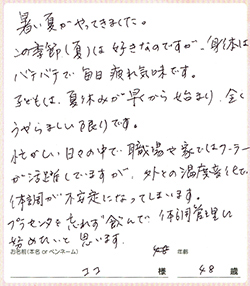 暑い夏がやってきました。
この季節(夏)は好きなのですが、身体は
バテバテで毎日疲れ気味です。
子どもは、夏休みが早くから始まり、全く
うらやましい限りです。
忙がしい日々の中で職場や家ではクーラー
が活躍していますが、外との温度差で、
体調が不安定になってしまいます。
プラセンタを忘れず飲んで体調管理に
努めたいと思います。
お名前(本名 or ペンネーム) 年齢
ココ 様 48 歳